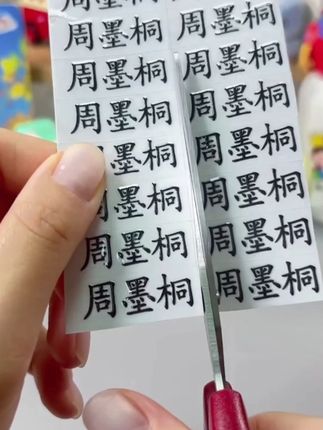 周墨桐 周墨桐
周墨桐 周墨桐
周墨桐 周墨桐
周墨桐 周墨桐
周墨桐 周墨桐
周墨桐 周墨桐
周墨桐 周墨桐